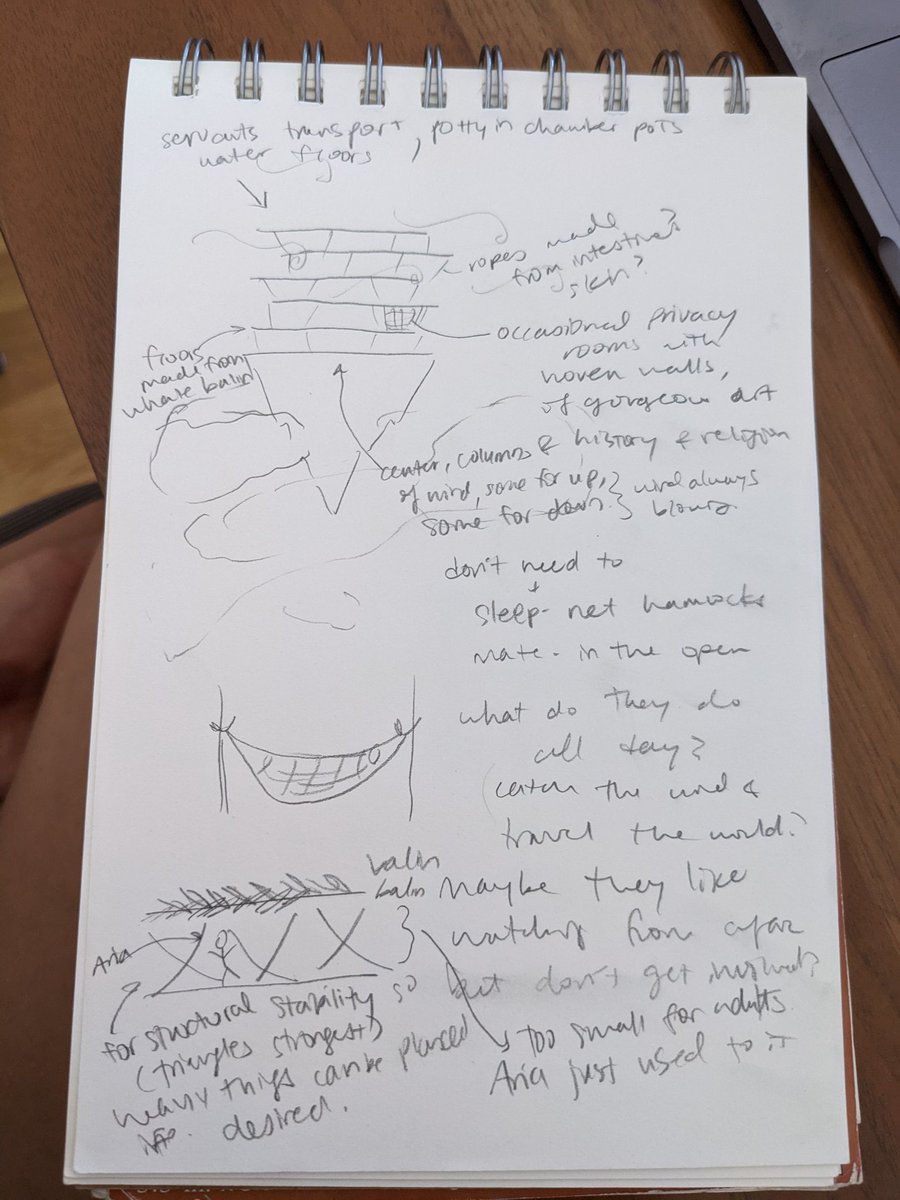 servants transport, potty in chamber pots
water floors
ropes made
from intestines?
skin?
occasional privacy
rooms with
woven walls,
of gorgeous art
& history & religion
floors
made from
whale balin
center, columns
of wind, some for up,
some for down. } wind always
blowing
don't need to
sleep - net hammocks
mate - in the open
what do they do
all day?
catch the wind &
travel the world?
balin
balin
maybe they like
watching from afar
but don't get involved?
Aria
too small for adults
Aria just used to it
for structural stability so
(triangles strongest)
heavy things can be placed
desired.